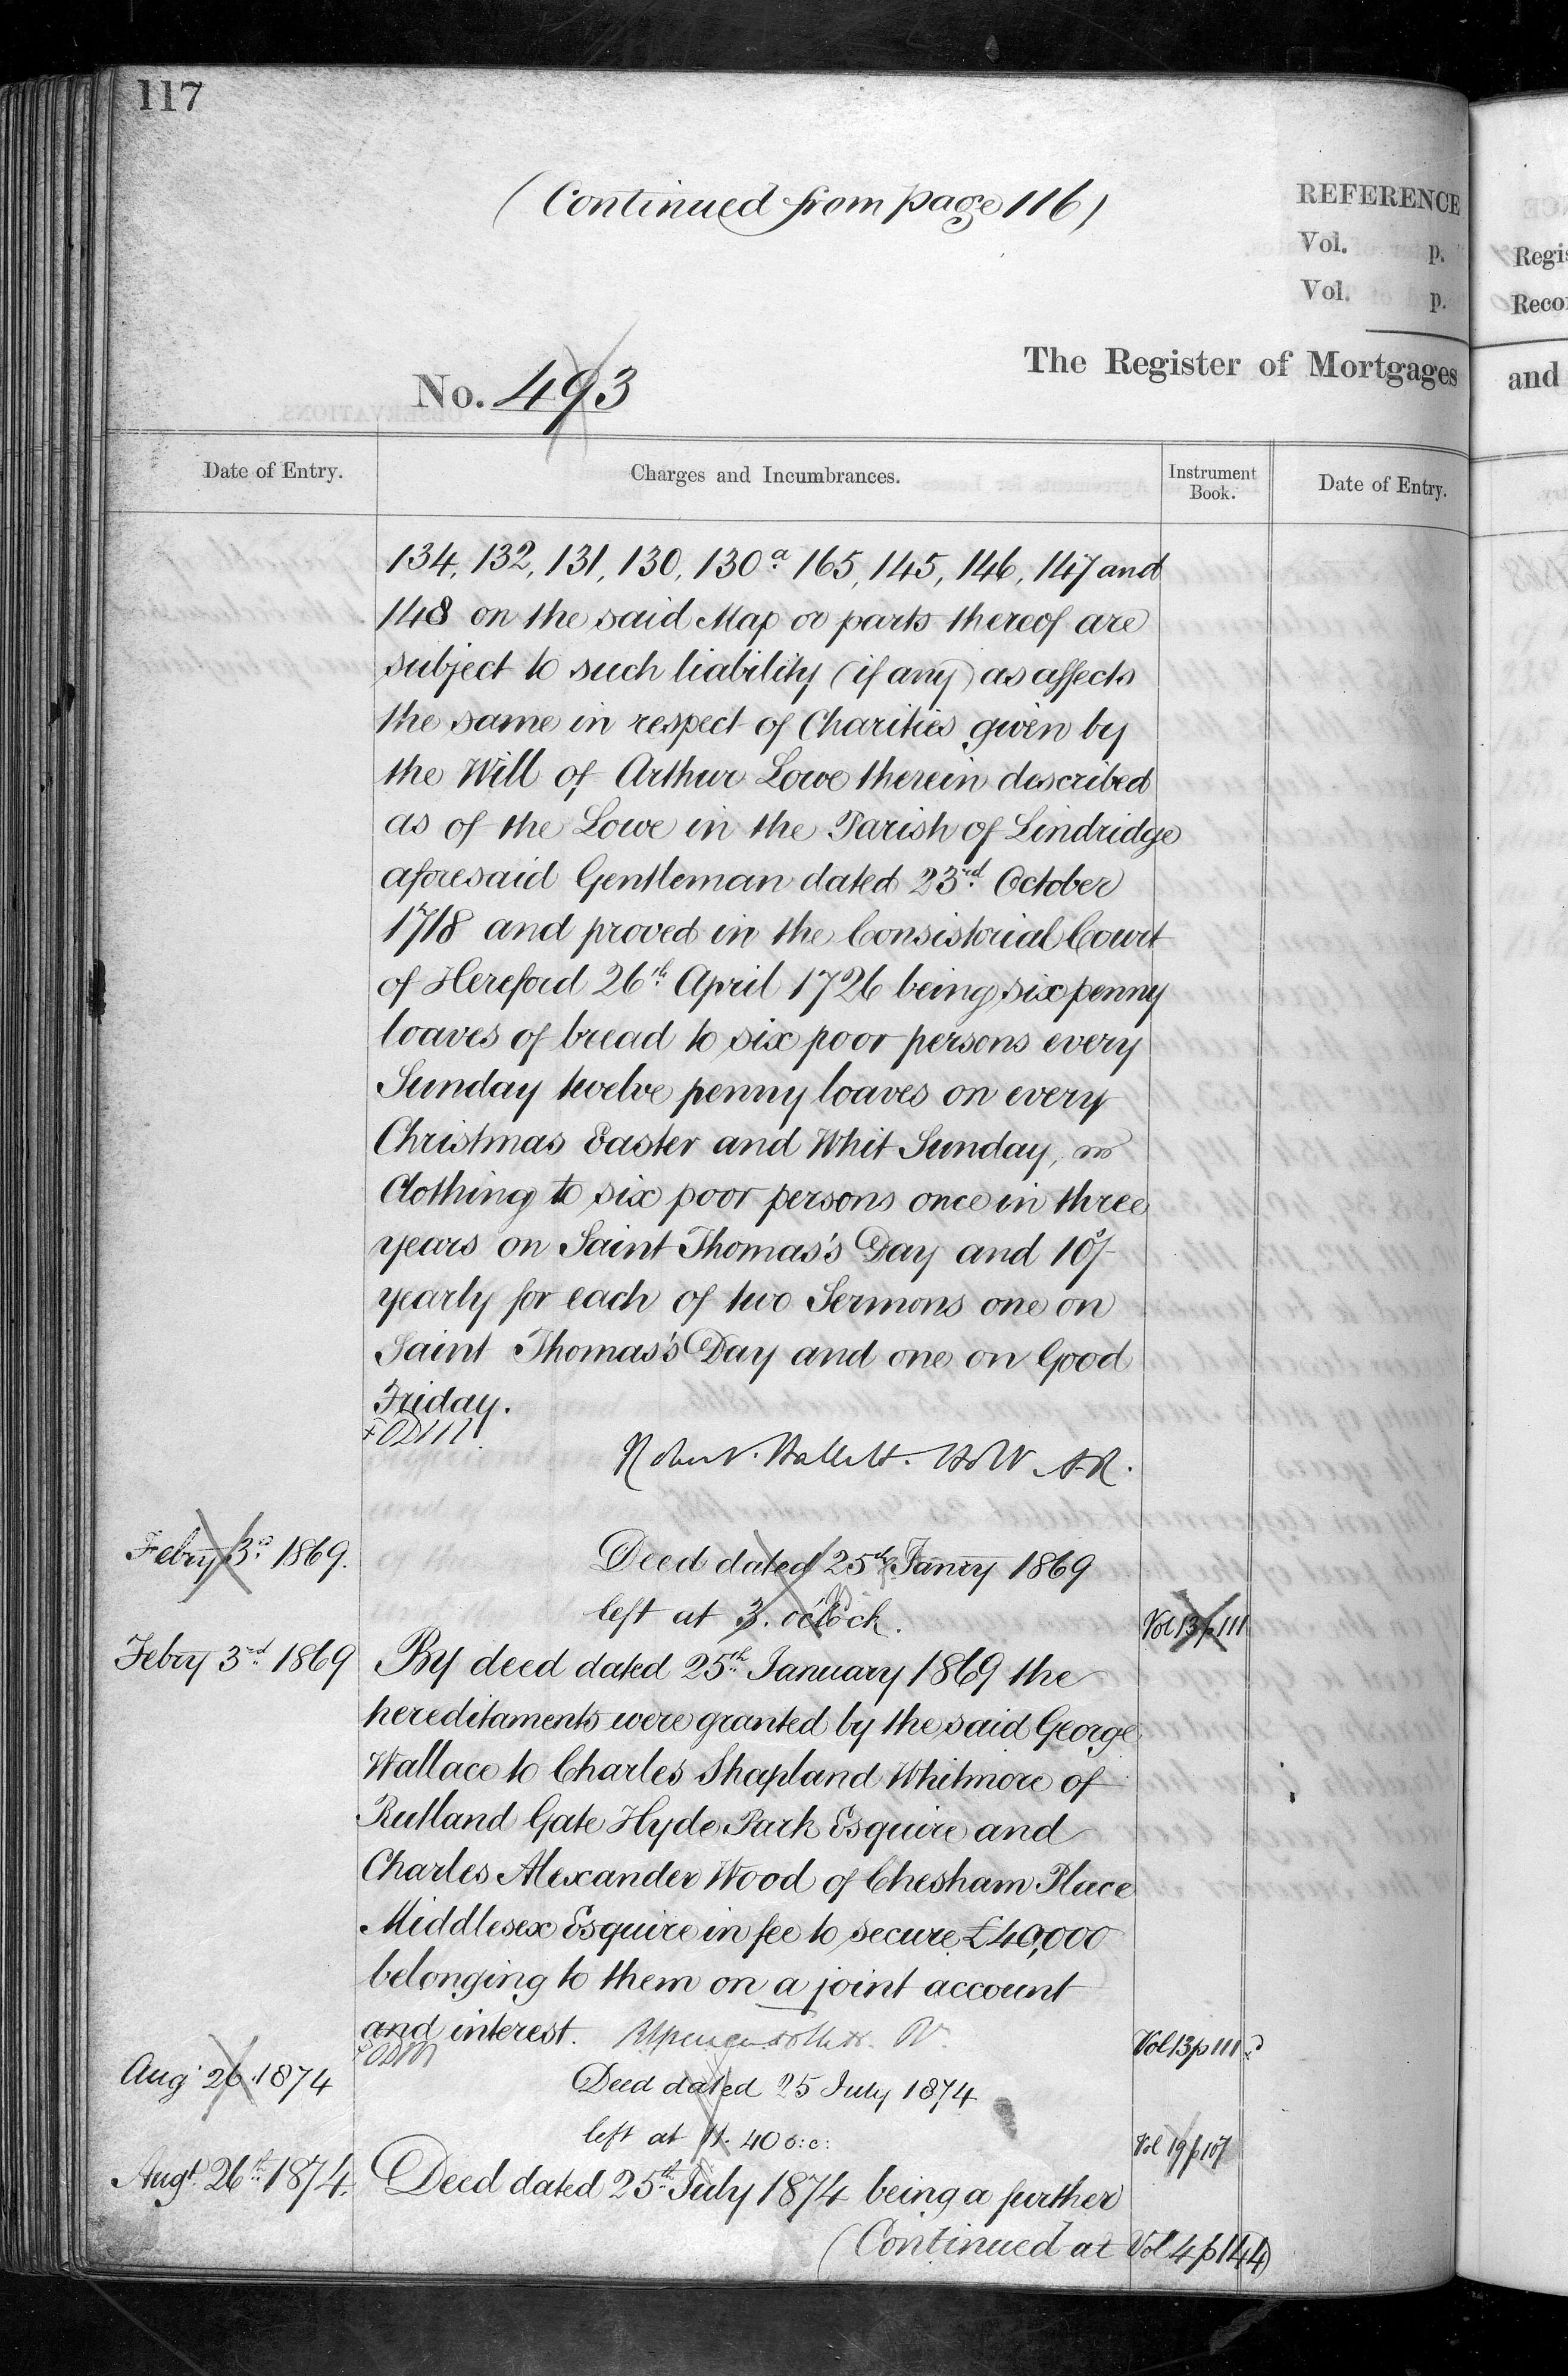 117
(Continued from page 116)
REFERENCE
Vol. p.
Vol. p.
No. 493
The Register of Mortgages
Date of Entry.
Charges and Incumbrances.
Instrument Book.
Date of Entry.
134, 132, 131, 130, 130a 165, 145, 146, 147 and
148 on the said Map or parts thereof are
subject to such liability (if any) as affects
the same in respect of Charities given by
the Will of Arthur Lowe therein described
as of the Lowe in the Parish of Lindridge
aforesaid Gentleman dated 23rd October
1718 and proved in the Consistorial Court
of Hereford 26th April 1726 being six penny
loaves of bread to six poor persons every
Sunday twelve penny loaves on every
Christmas Easter and Whit Sunday,
Clothing to six poor persons once in three
years on Saint Thomas's Day and 10s/-
yearly for each of two Sermons one on
Saint Thomas's Day and one on Good
Friday.
Febry 3rd 1869.
Deed dated 25th Janry 1869
left at 3. o'clock.
Vol 13 p 111
Febry 3rd 1869
By deed dated 25th January 1869 the
hereditaments were granted by the said George
Wallace to Charles Shapland Whitmore of
Rutland Gate Hyde Park Esquire and
Charles Alexander Wood of Chesham Place
Middlesex Esquire in fee to secure £40,000
belonging to them on a joint account
and interest.
Vol 13 p 111
Aug 26. 1874
Deed dated 25 July 1874
left at 11. 40 o:c:
Vol 19 p 107
Augt 26th 1874.
Deed dated 25th July 1874 being a further
(Continued at Vol 4 p 144)
Regis
Recor
and